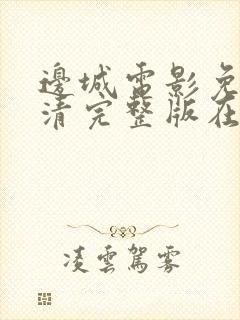 邊城電影免
清完整版在
凌雲駕霧